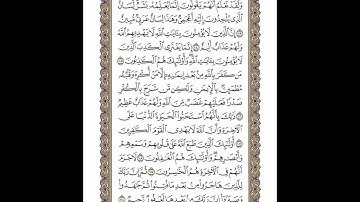 وَلَقَدْ نَعْلَمُ أَنَّهُمْ يَقُولُونَ إِنَّمَا يُعَلِّمُهُۥ بَشَرٌ لِّسَانُ
ٱلَّذِى يُلْحِدُونَ إِلَيْهِ أَعْجَمِىٌّ وَهَٰذَا لِسَانٌ عَرَبِىٌّ مُّبِينٌ ١٠٣
إِنَّ ٱلَّذِينَ لَا يُؤْمِنُونَ بِـَٔايَٰتِ ٱللَّهِ لَا يَهْدِيهِمُ ٱللَّهُ
وَلَهُمْ عَذَابٌ أَلِيمٌ ١٠٤ إِنَّمَا يَفْتَرِى ٱلْكَذِبَ ٱلَّذِينَ
لَا يُؤْمِنُونَ بِـَٔايَٰتِ ٱللَّهِ وَأُو۟لَٰٓئِكَ هُمُ ٱلْكَٰذِبُونَ ١٠٥
مَن كَفَرَ بِٱللَّهِ مِنۢ بَعْدِ إِيمَٰنِهِۦٓ إِلَّا مَنْ أُكْرِهَ وَقَلْبُهُۥ
مُطْمَئِنٌّۢ بِٱلْإِيمَٰنِ وَلَٰكِن مَّن شَرَحَ بِٱلْكُفْرِ
صَدْرًا فَعَلَيْهِمْ غَضَبٌ مِّنَ ٱللَّهِ وَلَهُمْ عَذَابٌ عَظِيمٌ
١٠٦ ذَٰلِكَ بِأَنَّهُمُ ٱسْتَحَبُّوا۟ ٱلْحَيَوٰةَ ٱلدُّنْيَا عَلَى
ٱلْـَٔاخِرَةِ وَأَنَّ ٱللَّهَ لَا يَهْدِى ٱلْقَوْمَ ٱلْكَٰفِرِينَ
١٠٧ أُو۟لَٰٓئِكَ ٱلَّذِينَ طَبَعَ ٱللَّهُ عَلَىٰ قُلُوبِهِمْ وَسَمْعِهِمْ
وَأَبْصَٰرِهِمْ وَأُو۟لَٰٓئِكَ هُمُ ٱلْغَٰفِلُونَ ١٠٨ لَا جَرَمَ
أَنَّهُمْ فِى ٱلْـَٔاخِرَةِ هُمُ ٱلْخَٰسِرُونَ ١٠٩ ثُمَّ إِنَّ رَبَّكَ
لِلَّذِينَ هَاجَرُوا۟ مِنۢ بَعْدِ مَا فُتِنُوا۟ ثُمَّ جَٰهَدُوا۟
وَصَبَرُوٓا۟ إِنَّ رَبَّكَ مِنۢ بَعْدِهَا لَغَفُورٌ رَّحِيمٌ